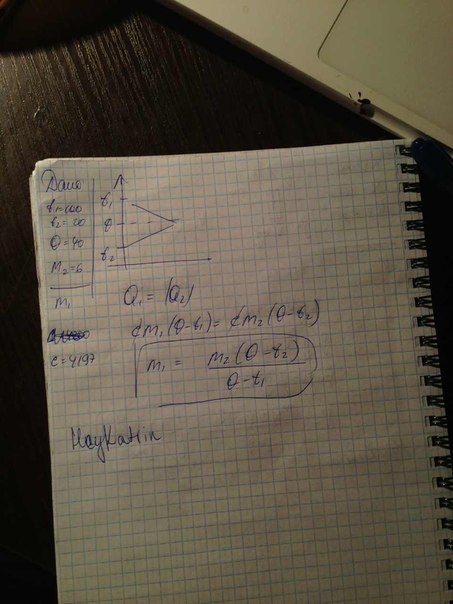 Дано
t₁=100
t₂=20
θ=40
M₂=6
m₁
c=4197
t₁
θ
t₂
Q₁ = |Q₂|
cm₁(θ-t₁)= cm₂(θ-t₂)
m₁ = m₂(θ-t₂)
θ-t₁